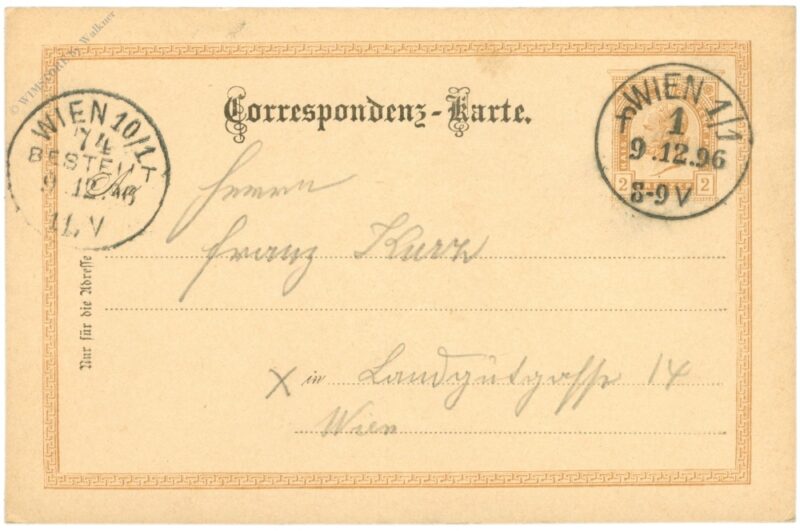 © WIMPCORE by Walkner
Correspondenz-Karte.
WIEN 1/1
1
9.12.96
8-9 V
2 2
WIEN 10/1
74
BESTELLT
9.12.96
11. V
Herrn
Franz Kurz
Nur für die Adresse
X in Landgutgasse 14
Wien